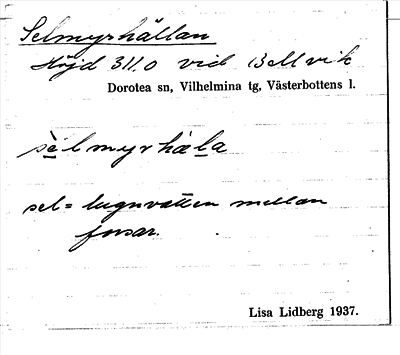 Selmyrhällan
Höjd 311.0 vid Bellvik
Dorotea sn, Vilhelmina tg, Västerbottens l.
sèlmyrhæla
sel = lugnvatten mellan
forsar.
Lisa Lidberg 1937.